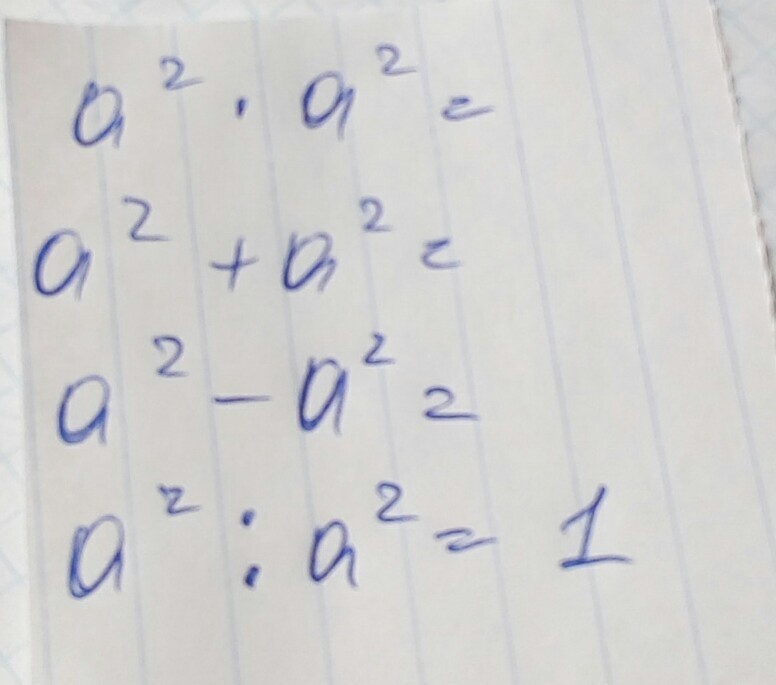 a² · a² =
a² + a² =
a² - a² =
a² : a² = 1